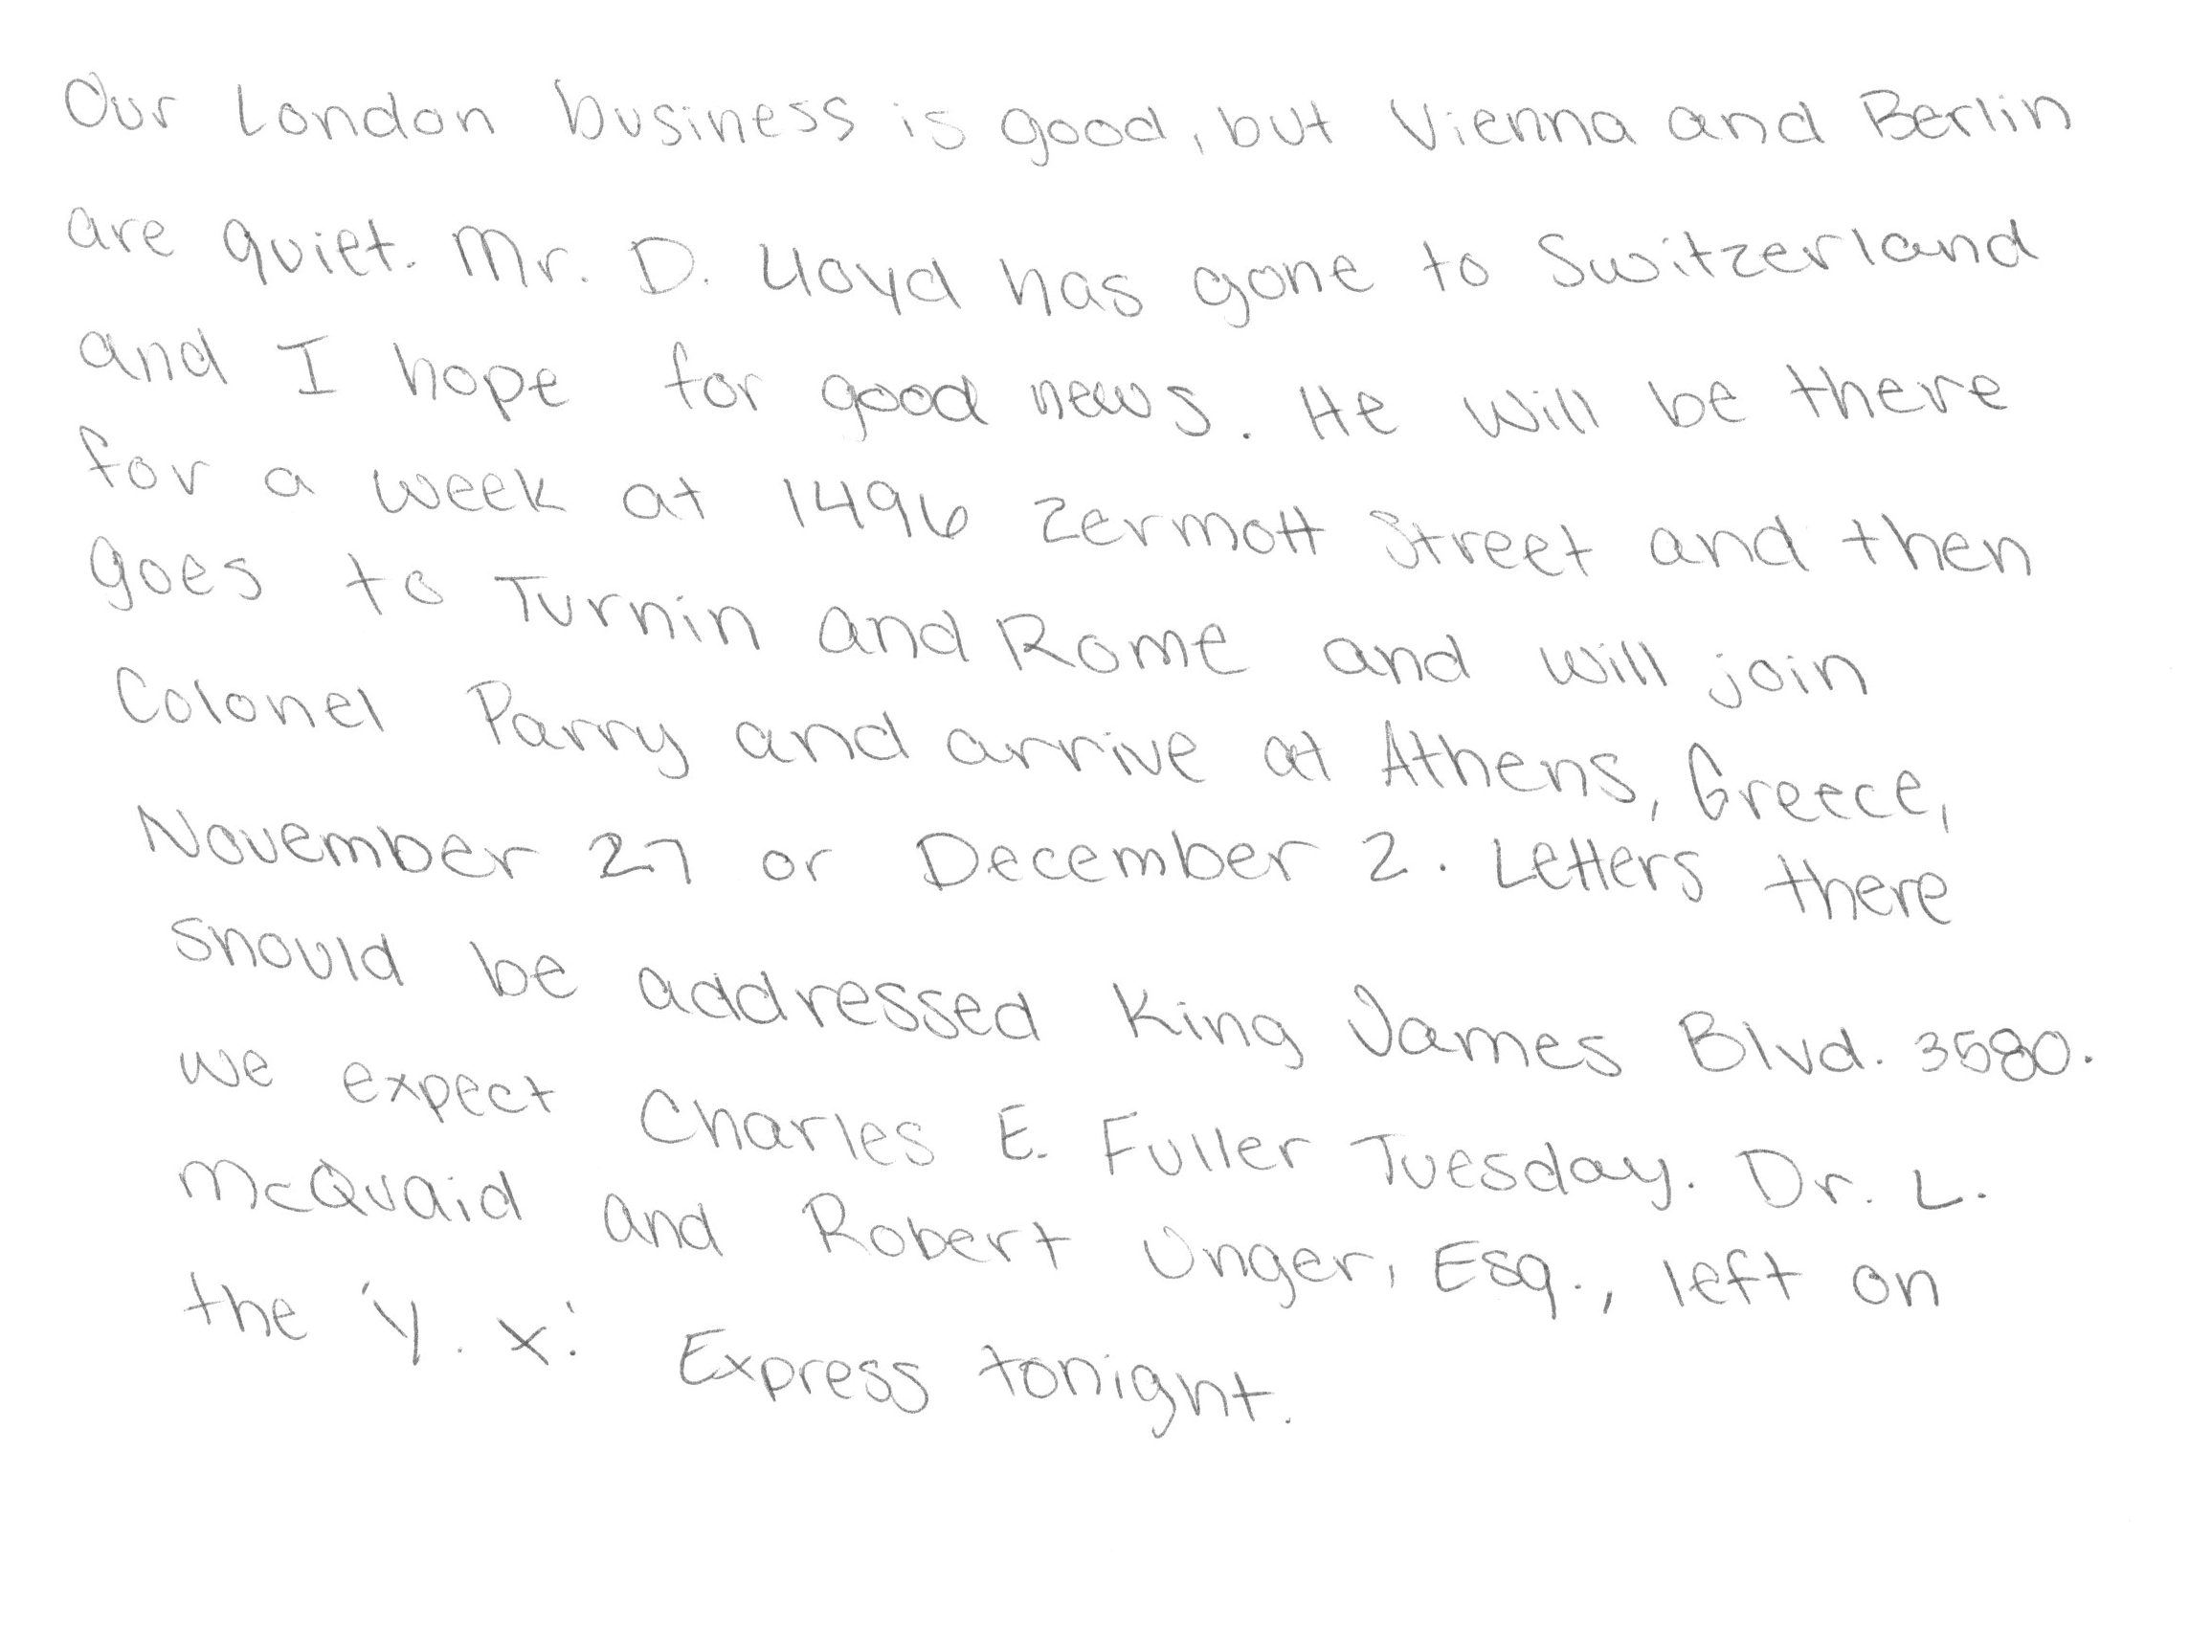 Our London business is good, but Vienna and Berlin
are quiet. Mr. D. Lloyd has gone to Switzerland
and I hope for good news. He will be there
for a week at 1496 Zermott Street and then
goes to Turnin and Rome and will join
Colonel Parry and arrive at Athens, Greece,
November 27 or December 2. Letters there
should be addressed King James Blvd. 3580.
We expect Charles E. Fuller Tuesday. Dr. L.
McQuaid and Robert Unger, Esq., left on
the 'Y. X.' Express tonight.